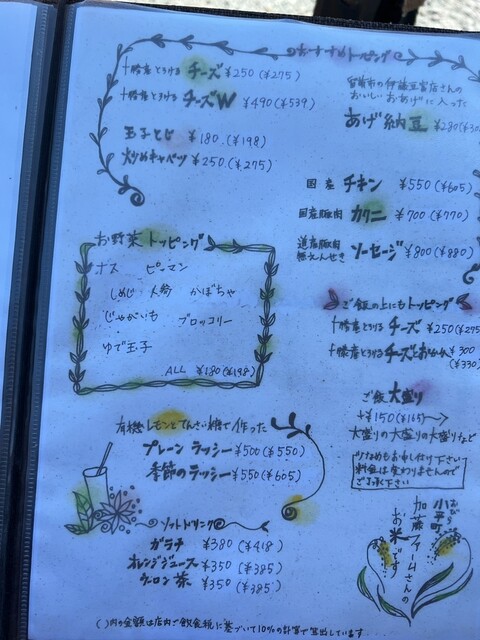 おすすめトッピング
十勝産とろける チーズ ¥250 (¥275)
十勝産とろける チーズW ¥490 (¥539)
玉子とじ ¥180 (¥198)
炒めキャベツ ¥250 (¥275)
留萌市の伊藤豆富店さんの
おいしいおあげに入った
あげ納豆 ¥280
国産 チキン ¥550 (¥605)
国産豚肉 カクニ ¥700 (¥770)
道産豚肉 ソーセージ ¥800 (¥880)
お野菜トッピング
ナス ピーマン
しめじ 人参 かぼちゃ
じゃがいも ブロッコリー
ゆで玉子
ALL ¥180 (¥198)
ご飯の上にもトッピング
十勝産とろける チーズ ¥250 (¥275
十勝産とろける チーズとおかか ¥300
(¥330)
ご飯大盛り
+¥150 (¥165)→
大盛りの大盛りの大盛りなど
少なめもお申し付け下さい
料金は変わりませんので
ご了承下さい
有機レモンとてんさい糖で作った
プレーンラッシー ¥500 (¥550)
季節のラッシー ¥550 (¥605)
ソフトドリンク
ガラナ ¥380 (¥418)
オレンジジュース ¥350 (¥385)
ウーロン茶 ¥350 (¥385)
小平町
加藤ファームさんの
お米です
( )内の金額は店内ご飲食税に基づいて10%の計算で算出しています